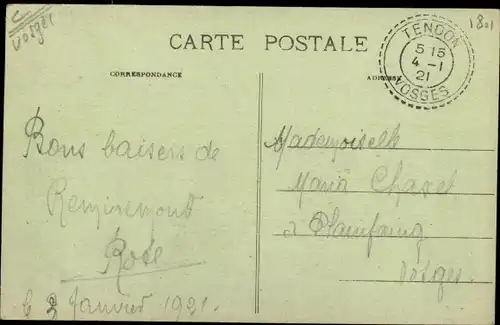 C
Vosges
1801
CARTE POSTALE
TENDON
5 15
4 -1
21
VOSGES
CORRESPONDANCE
ADRESSE
Bons baisers de
Remiremont
Rose
le 3 Janvier 1921.
Mademoiselle
Maria Chaxel
à Plainfaing
Vosges.